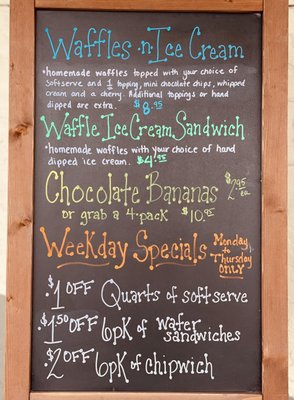 Waffles 'n Ice Cream
• homemade waffles topped with your choice of
Softserve and 1 topping, mini chocolate chips, whipped
cream and a cherry. Additional toppings or hand
dipped are extra. $8.95
Waffle Ice Cream Sandwich
• homemade waffles with your choice of hand
dipped ice cream. $4.95
Chocolate Bananas $2.95 ea
or grab a 4-pack $10.95
Weekday Specials
Monday
to
Thursday
ONLY
• $1 OFF Quarts of softserve
• $1.50 OFF 6pk of wafer sandwiches
• $2 OFF 6pk of chipwich